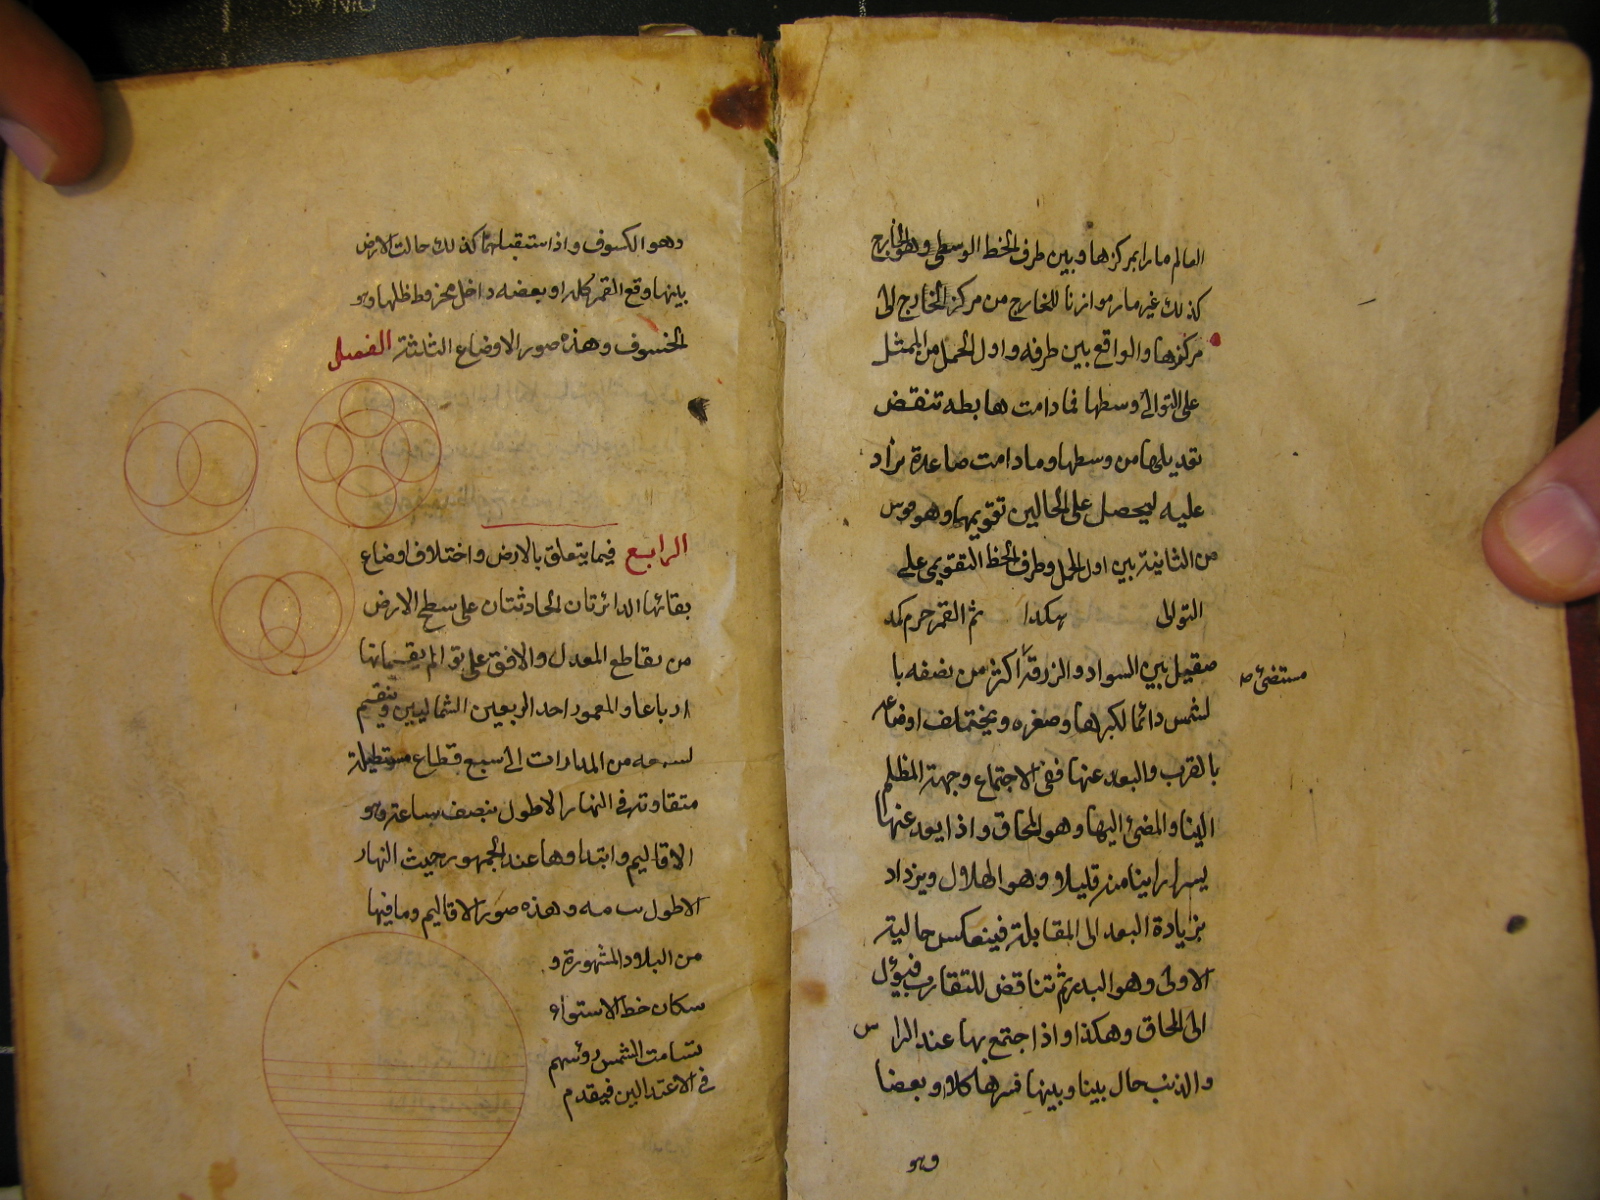 العالم مارا بمركزها وبين طرف الخط الوسطى وهو الخارج
كذلك غير مار موازنا للخارج من مركز الخارج الى
مركزها والواقع بين طرفه واول الحمل من الممثل
على التوالى وسطها فمادامت هابطه تنقض
تعديلها من وسطها ومادامت صاعدة يزاد
عليه ليحصل على الحالين تقويمها وهو قوس
من الثانية بين اول الحمل وطرف الخط التقويمى على
التوالى هكذا ثم القمر جرم كمد
صقيل بين السواد والزرقة اكثر من نصفه با
مستضئ صه
لشمس دائما لكبرها وصغره ويختلف اوضاعه
بالقرب والبعد عنها ففى الاجتماع وجهة المظلم
الينا والمضئ اليها وهو المحاق واذا يود عنها
يسرا راينا منه قليلا وهو الهلال ويزداد
بزيادة البعد الى المقابلة فينعكس حاليته
الاولى وهو البدر ثم تناقض للتقارب فيؤل
الى المحاق وهكذا واذا اجتمع بها عند الراس
والذنب حال بينا وبينها فسرها كلا وبعضا
وهو
وهو الكسوف واذا استقبلهما كذلك حالت الارض
بينها وقع القمر كله او بعضه داخل مخروط ظلها وهو
الخسوف وهذه صور الاوضاع الثلثة الفصل
الرابع فيما يتعلق بالارض واختلاف اوضاع
بقائها الدائرتان الحادثتان على سطح الارض
من تقاطع المعدل والافق على قوائم يقسمانها
ارباعا والمعمور احد الربعين الشماليين وينقسم
من المدارات الى سبع قطاع مستطيلة
متفاوتة فى النهار الاطول بنصف ساعة وهو
الاقاليم وابتداوها عند الجمهور حيث النهار
الاطول وهذه صور الاقاليم وما فيها
من البلاد المشهورة و
سكان خط الاستواء
تسامت الشمس رؤسهم
فى الاعتدالين فيقدم